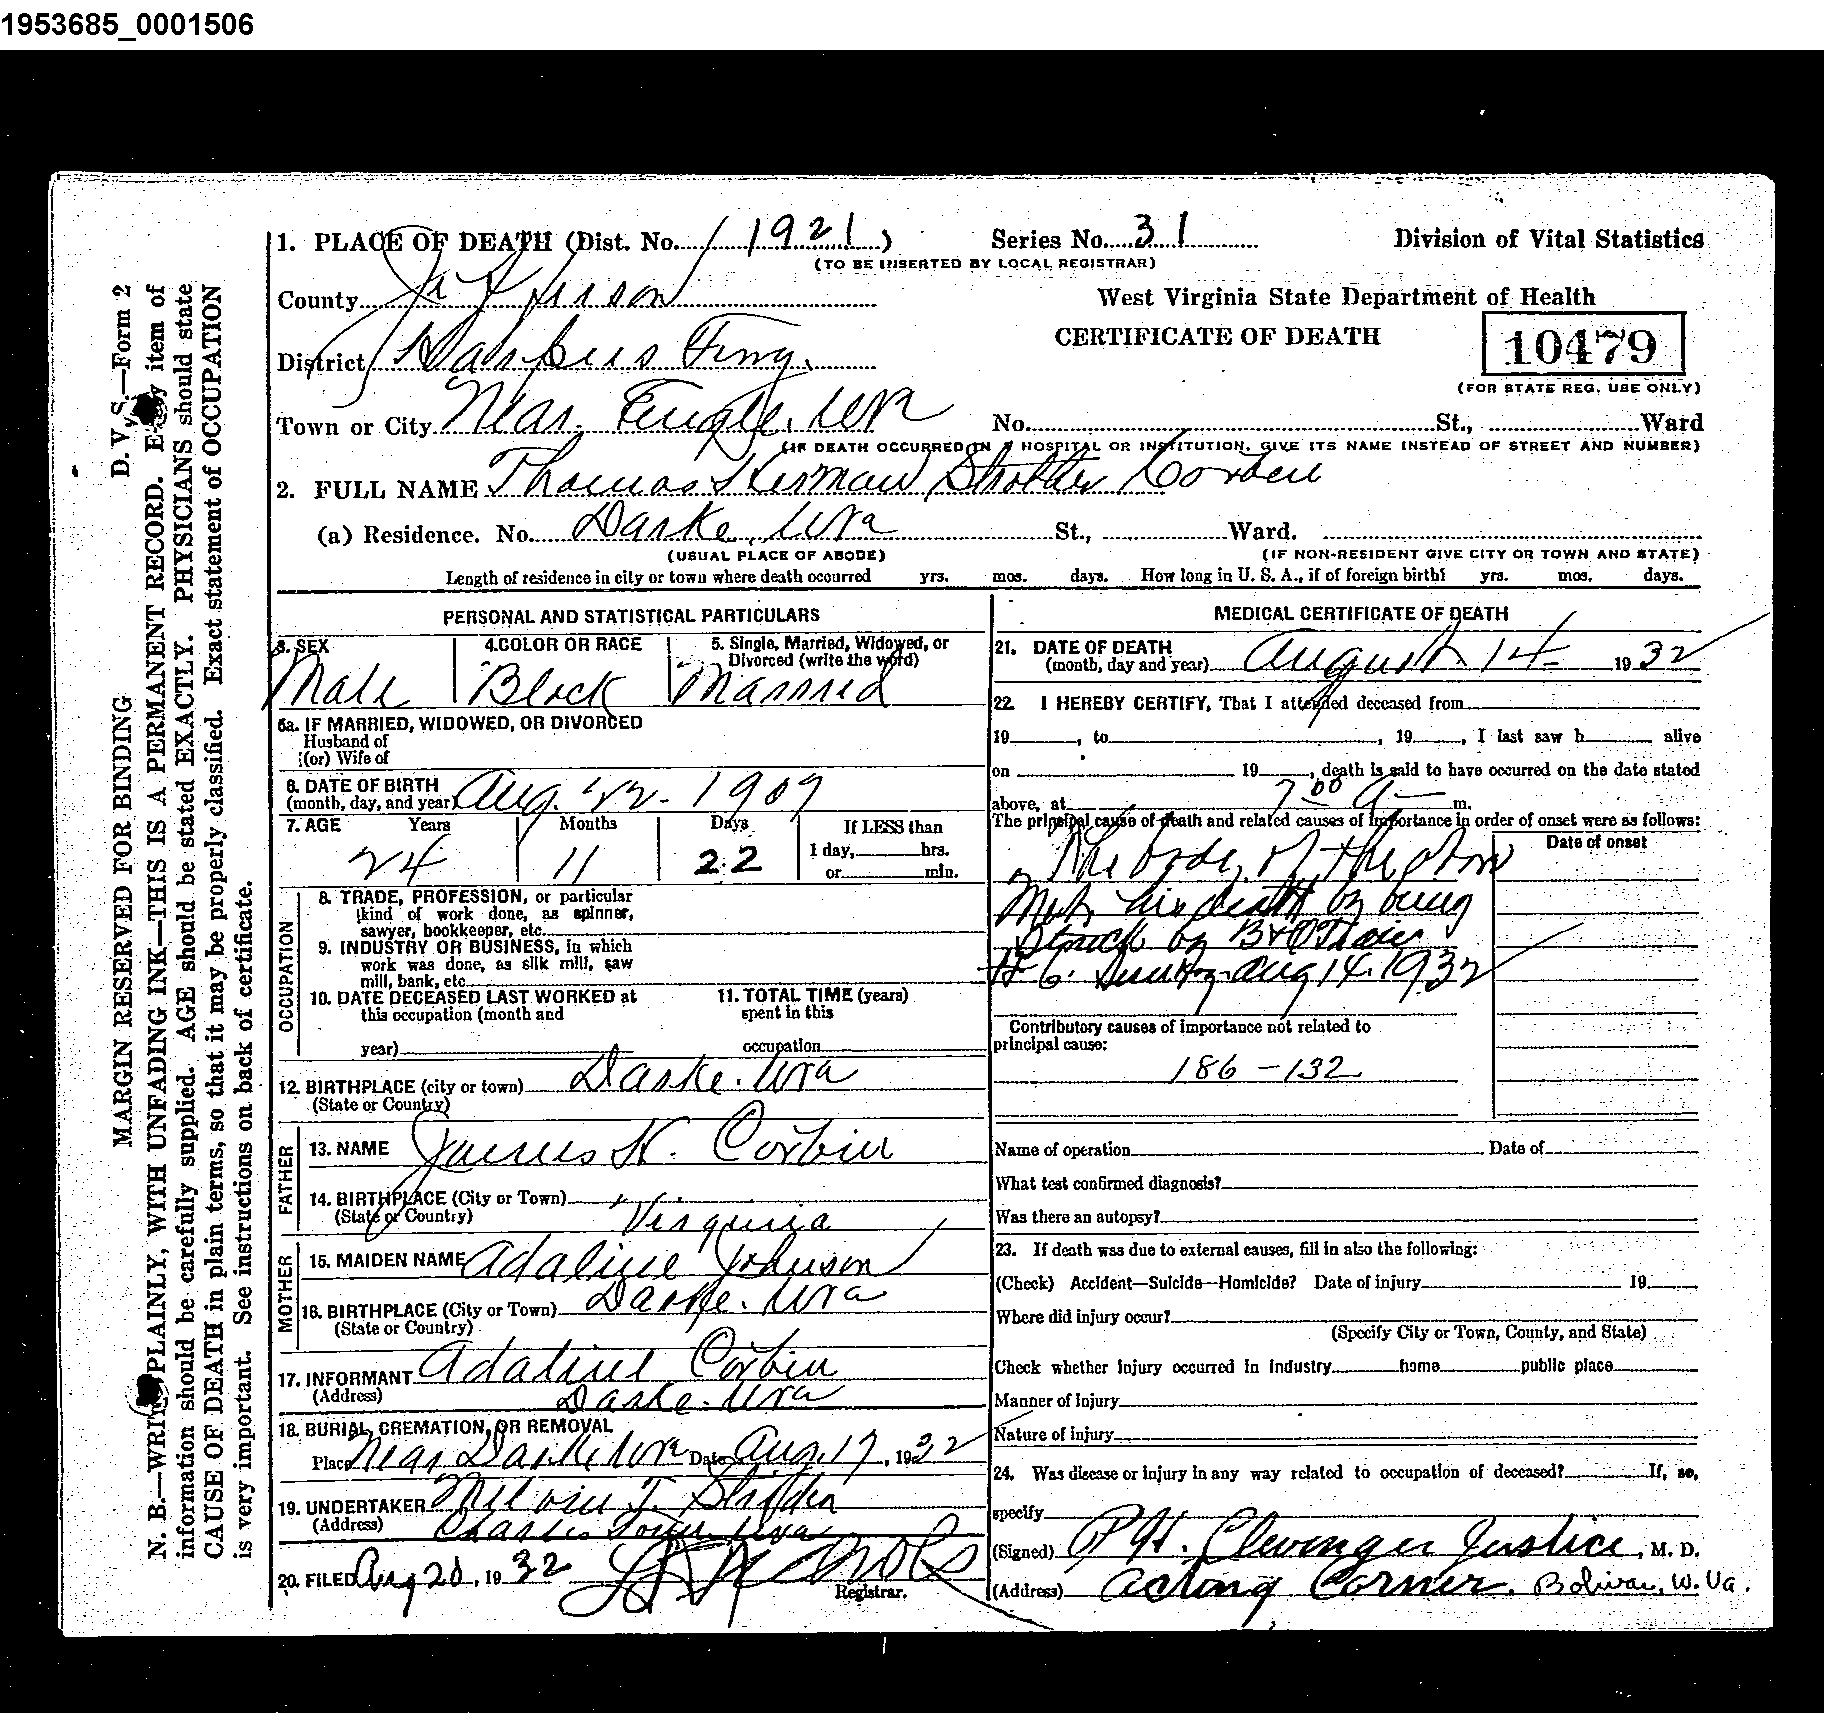 1953685_0001506
1. PLACE OF DEATH (Dist. No. 1921)
Series No. 31
Division of Vital Statistics
(TO BE INSERTED BY LOCAL REGISTRAR)
County Jefferson
West Virginia State Department of Health
CERTIFICATE OF DEATH
10479
(FOR STATE REG. USE ONLY)
District Harpers Ferry.
Town or City Near. Engle. WVa
No. St., Ward
(IF DEATH OCCURRED IN A HOSPITAL OR INSTITUTION, GIVE ITS NAME INSTEAD OF STREET AND NUMBER)
2. FULL NAME Thomas Herman Strother Corbin
(a) Residence. No. Darke, WVa St., Ward.
(USUAL PLACE OF ABODE) (IF NON-RESIDENT GIVE CITY OR TOWN AND STATE)
Length of residence in city or town where death occurred yrs. mos. days. How long in U. S. A., if of foreign birth? yrs. mos. days.
PERSONAL AND STATISTICAL PARTICULARS
3. SEX 4. COLOR OR RACE 5. Single, Married, Widowed, or
Divorced (write the word)
Male Black Married
5a. IF MARRIED, WIDOWED, OR DIVORCED
Husband of
(or) Wife of
6. DATE OF BIRTH
(month, day, and year) Aug. 22 - 1909
7. AGE Years Months Days If LESS than
24 11 22 1 day, hrs.
or min.
OCCUPATION
8. TRADE, PROFESSION, or particular
kind of work done, as spinner,
sawyer, bookkeeper, etc.
9. INDUSTRY OR BUSINESS, in which
work was done, as silk mill, saw
mill, bank, etc
10. DATE DECEASED LAST WORKED at 11. TOTAL TIME (years)
this occupation (month and spent in this
year) occupation
12. BIRTHPLACE (city or town) Darke. WVa
(State or Country)
FATHER
13. NAME James H. Corbin
14. BIRTHPLACE (City or Town)
(State or Country) Virginia
MOTHER
15. MAIDEN NAME Adaline Johnson
16. BIRTHPLACE (City or Town) Darke. WVa
(State or Country)
17. INFORMANT Adaline Corbin
(Address) Darke. WVa
18. BURIAL, CREMATION, OR REMOVAL
Place Near Darke WVa Date Aug. 17, 1932
19. UNDERTAKER Melvin T. Strider
(Address) Charles Town WVa
20. FILED Aug 20, 1932
Registrar.
MEDICAL CERTIFICATE OF DEATH
21. DATE OF DEATH
(month, day and year) August 14 1932
22. I HEREBY CERTIFY, That I attended deceased from
19 , to , 19 , I last saw h alive
on 19 , death is said to have occurred on the date stated
above, at 7 00 A m.
The principal cause of death and related causes of importance in order of onset were as follows:
Date of onset
The body of the above
Met his death by being
Struck by B&O Train
# 6. Sunday Aug 14. 1932
Contributory causes of importance not related to
principal cause:
186 - 132
Name of operation Date of
What test confirmed diagnosis?
Was there an autopsy?
23. If death was due to external causes, fill in also the following:
(Check) Accident—Suicide—Homicide? Date of injury 19
Where did injury occur?
(Specify City or Town, County, and State)
Check whether injury occurred in industry home public place
Manner of injury
Nature of injury
24. Was disease or injury in any way related to occupation of deceased? If, so,
specify
(Signed) Clevenger Justice, M. D.
(Address) Acting Corner. Bolivar, W. Va.
D. V. S.—Form 2
MARGIN RESERVED FOR BINDING
N. B.—WRITE PLAINLY, WITH UNFADING INK—THIS IS A PERMANENT RECORD. Every item of
information should be carefully supplied. AGE should be stated EXACTLY. PHYSICIANS should state
CAUSE OF DEATH in plain terms, so that it may be properly classified. Exact statement of OCCUPATION
is very important. See instructions on back of certificate.